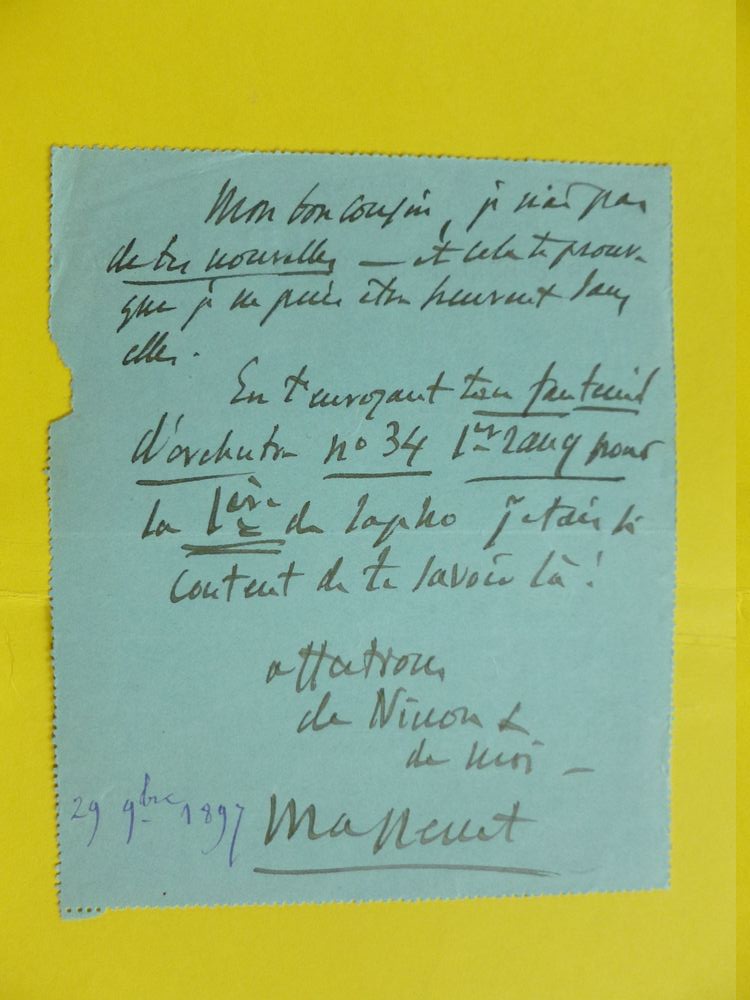 Mon bon cousin, je n'ai pas
de tes nouvelles — et cela te prouve
que je ne puis être heureux sans
elles.
En t'envoyant ton fauteuil
d'orchestre nº 34 1er rang pour
la 1ère de Sapho j'étais si
content de te savoir là !
affections
de Ninon &
de moi —
29 9bre 1897 Massenet